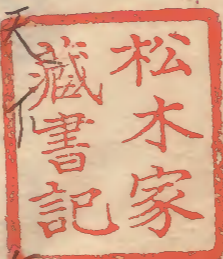 松木家
藏書記
天